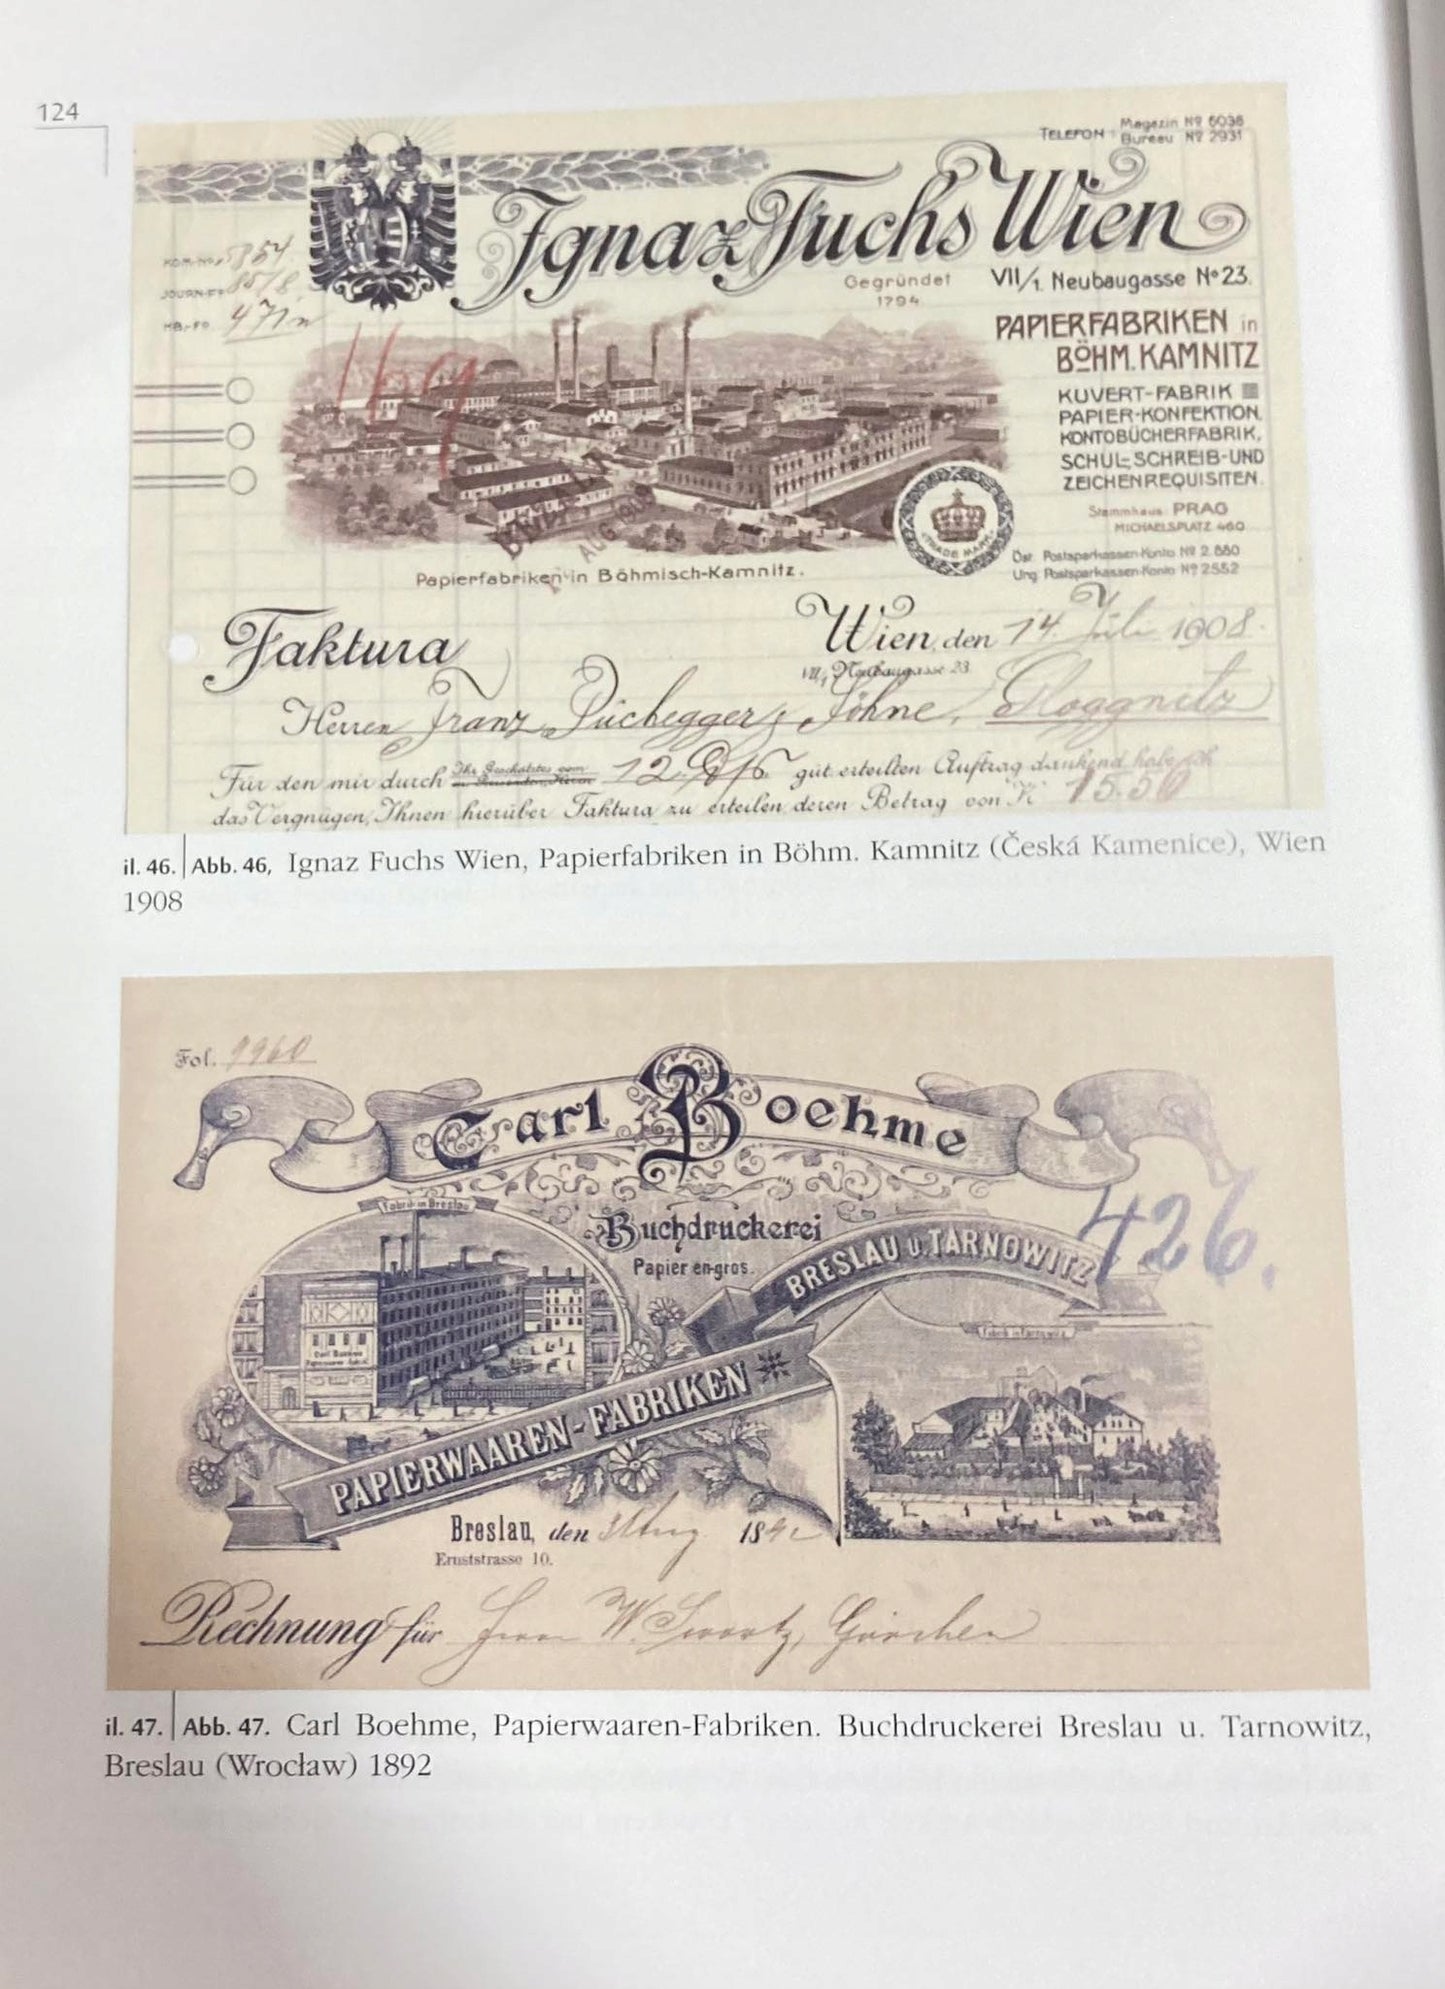 124
TELEFON: Magazin Nº 6036
Bureau Nº 2931
Ignaz Fuchs Wien
Gegründet
1794
VII/1. Neubaugasse Nº 23.
KOM.-No. 5354
JOURN.-Fº 85/8.
HB.-FO. 471
169
PAPIERFABRIKEN in
BÖHM. KAMNITZ
KUVERT-FABRIK
PAPIER-KONFEKTION,
KONTOBÜCHERFABRIK,
SCHUL-, SCHREIB- UND
ZEICHENREQUISITEN.
Stammhaus: PRAG
MICHAELSPLATZ 460
TRADE MARK
AUG 1908
Öst. Postsparkassen-Konto Nº 2.880
Ung. Postsparkassen-Konto Nº 2552
Papierfabriken in Böhmisch-Kamnitz.
Faktura
Wien, den 14. Juli 1908.
VII/1 Neubaugasse 23
Herren Franz Püchegger's Söhne, Gloggnitz
Für den mir durch 12. gut erteilten Auftrag dankend habe ich
das Vergnügen, Ihnen hierüber Faktura zu erteilen, deren Betrag von K 15.50
il. 46. | Abb. 46, Ignaz Fuchs Wien, Papierfabriken in Böhm. Kamnitz (Česká Kamenice), Wien
1908
Fol. 9960
Carl Boehme
426.
Fabrik in Breslau
Buchdruckerei
Papier en-gros.
BRESLAU u. TARNOWITZ
Fabrik in Tarnowitz
Carl Boehme
PAPIERWAAREN-FABRIKEN
Breslau, den 3 Aug 1892
Ernststrasse 10.
Rechnung für Herrn W. Swartz,
il. 47. | Abb. 47. Carl Boehme, Papierwaaren-Fabriken. Buchdruckerei Breslau u. Tarnowitz,
Breslau (Wrocław) 1892